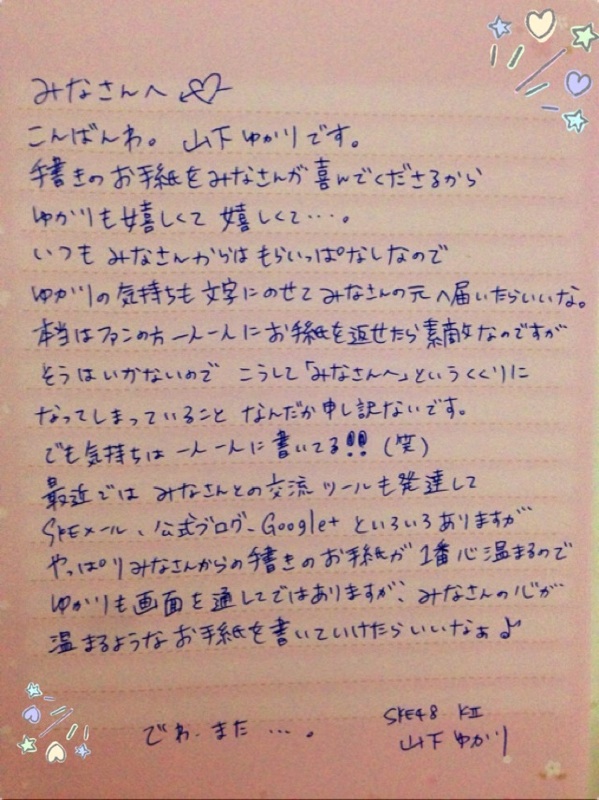 みなさんへ
こんばんわ。山下ゆかりです。
手書きのお手紙をみなさんが喜んでくださるから
ゆかりも嬉しくて嬉しくて…。
いつもみなさんからはもらいっぱなしなので
ゆかりの気持ちも文字にのせてみなさんの元へ届いたらいいな。
本当はファンの方一人一人にお手紙を返せたら素敵なのですが
そうはいかないので こうして「みなさんへ」というくくりに
なってしまっていること なんだか申し訳ないです。
でも気持ちは一人一人に書いてる!!(笑)
最近では みなさんとの交流ツールも発達して
SKEメール、公式ブログ、Google+ といろいろありますが
やっぱりみなさんからの手書きのお手紙が1番心温まるので
ゆかりも画面を通してではありますが、みなさんの心が
温まるようなお手紙を書いていけたらいいなぁ♪
でわ、また …。
SKE48 KⅡ
山下ゆかり